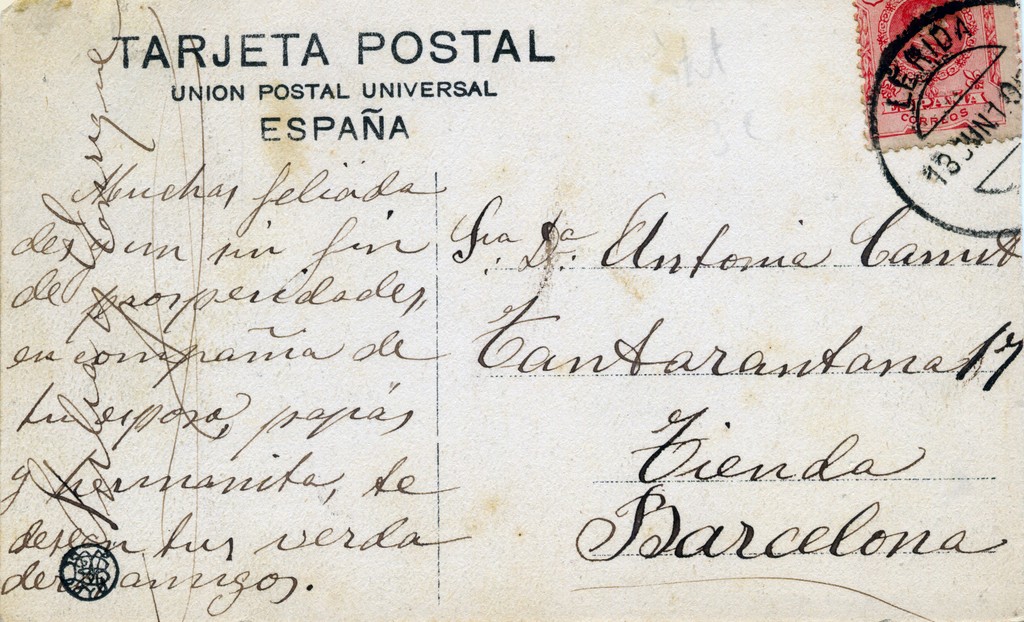 TARJETA POSTAL
UNION POSTAL UNIVERSAL
ESPAÑA
CORREOS
LERIDA
13 JUN
Muchas felicida
des y un sin fin
de prosperidades,
en compañia de
tu esposo, papás
y hermanita, te
desean tus verda
deros amigos.
Sra. Da. Antonia Canut
Tantarantana 17
Tienda
Barcelona